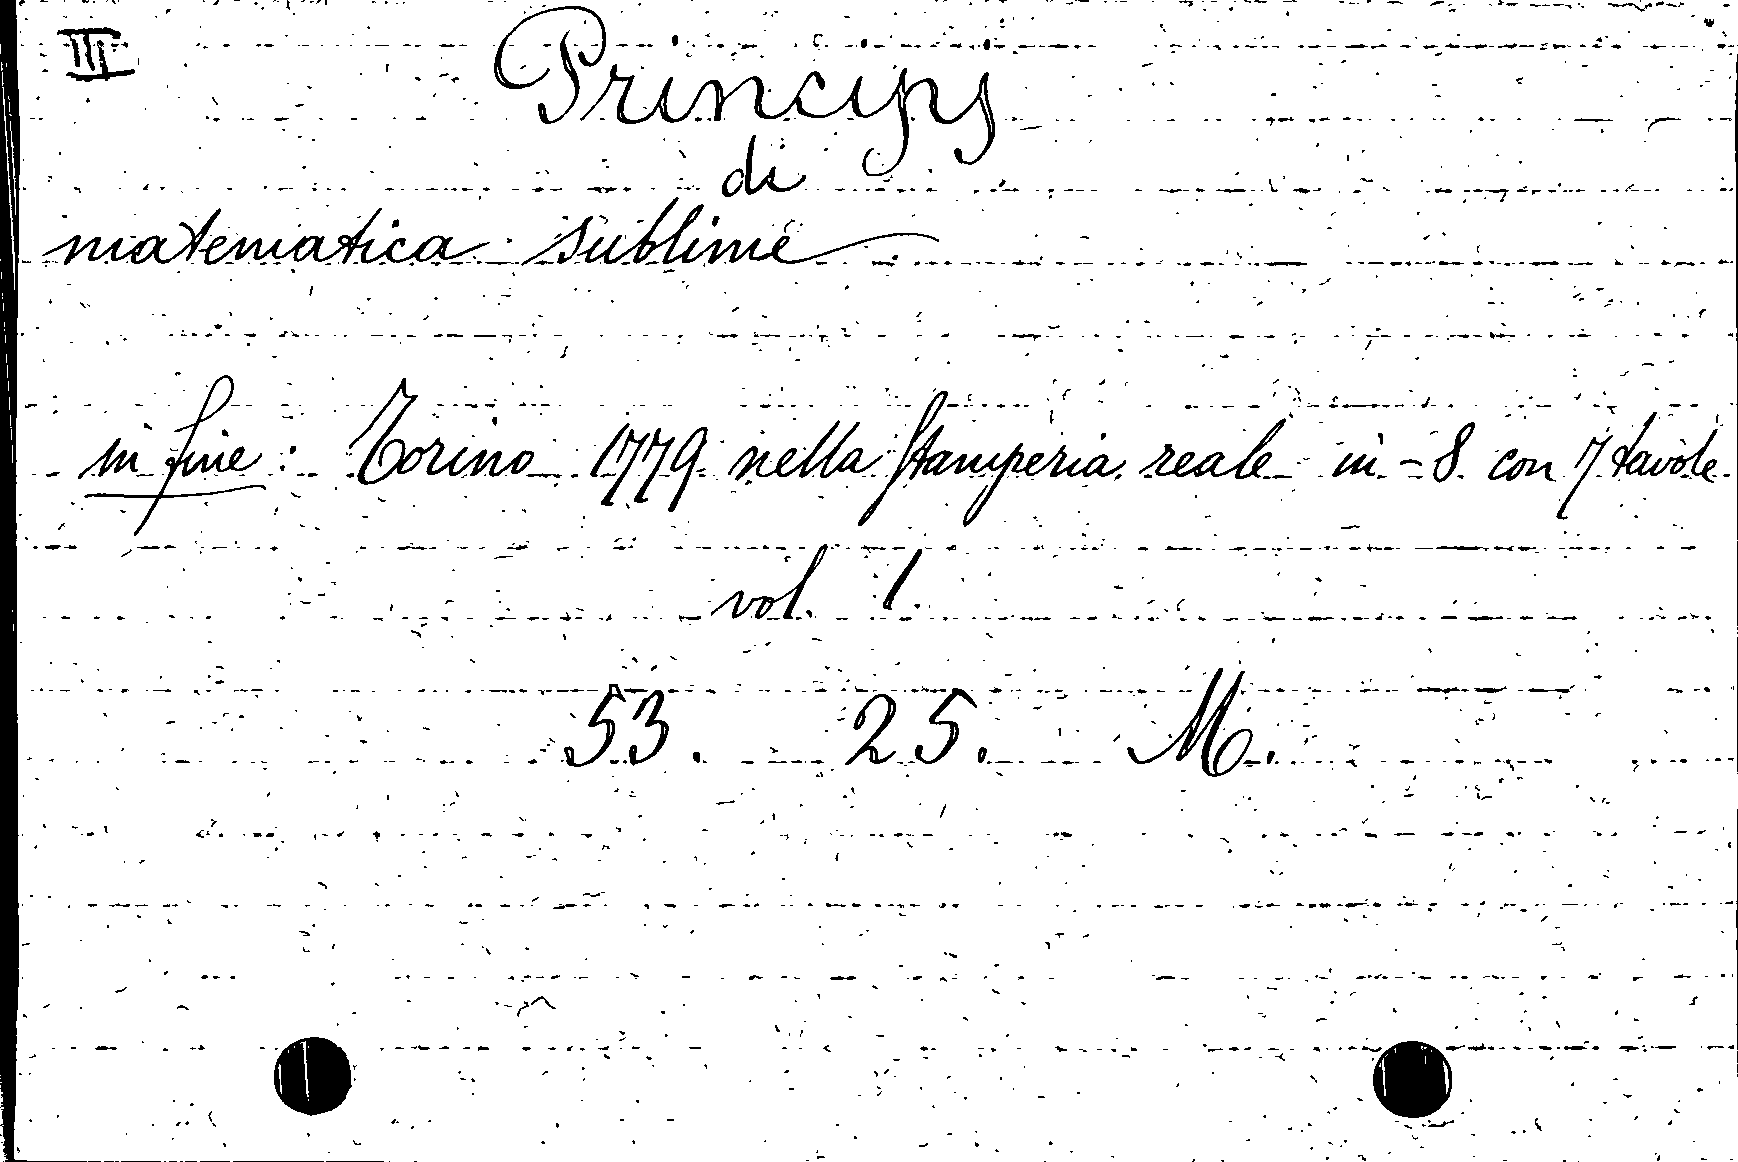 III
Principj
di
matematica sublime
in fine: Torino 1779 nella Stamperia reale in-8 con 7 tavole
vol. 1.
53. 25. M.